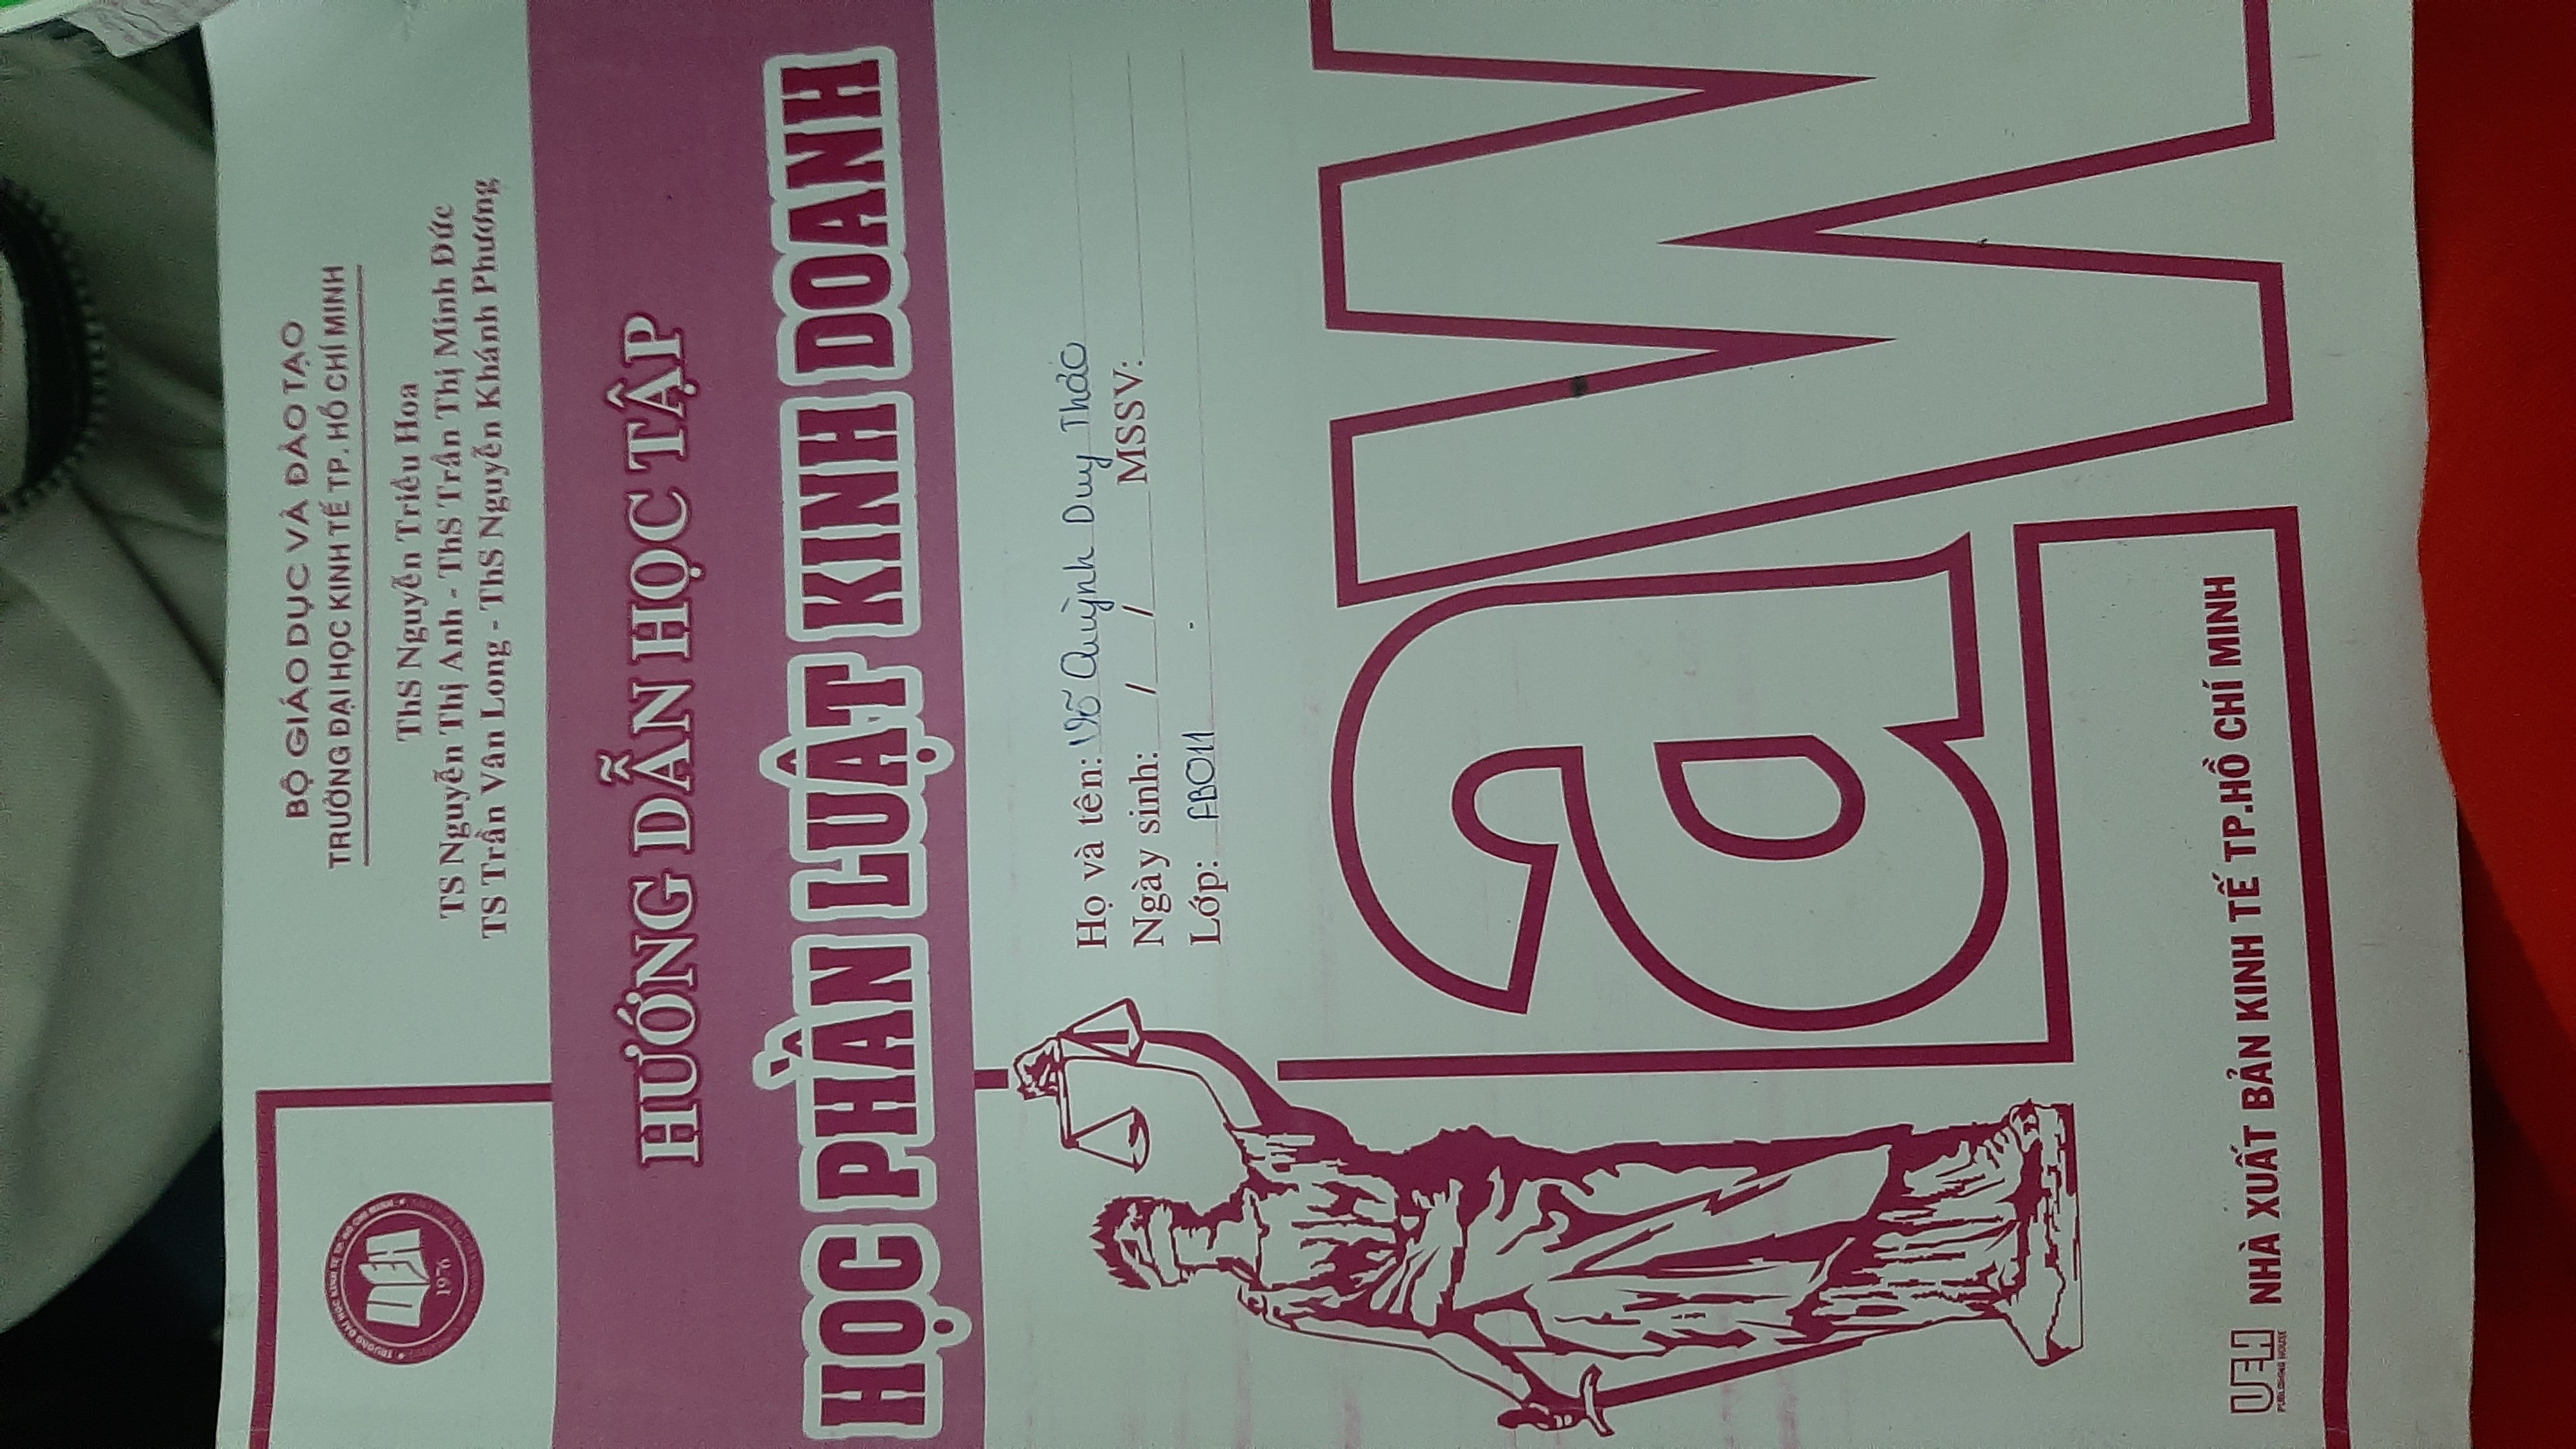 BỘ GIÁO DỤC VÀ ĐÀO TẠO
TRƯỜNG ĐẠI HỌC KINH TẾ TP. HỒ CHÍ MINH
TRƯỜNG ĐẠI HỌC KINH TẾ TP. HỒ CHÍ MINH
UEH
1976
ThS Nguyễn Triều Hoa
TS Nguyễn Thị Anh - ThS Trần Thị Minh Đức
TS Trần Vân Long - ThS Nguyễn Khánh Phương
HƯỚNG DẪN HỌC TẬP
HỌC PHẦN LUẬT KINH DOANH
Họ và tên: Võ Quỳnh Duy Thảo
Ngày sinh: / / MSSV:
Lớp: FB011
Law
UEH
PUBLISHING HOUSE
NHÀ XUẤT BẢN KINH TẾ TP.HỒ CHÍ MINH